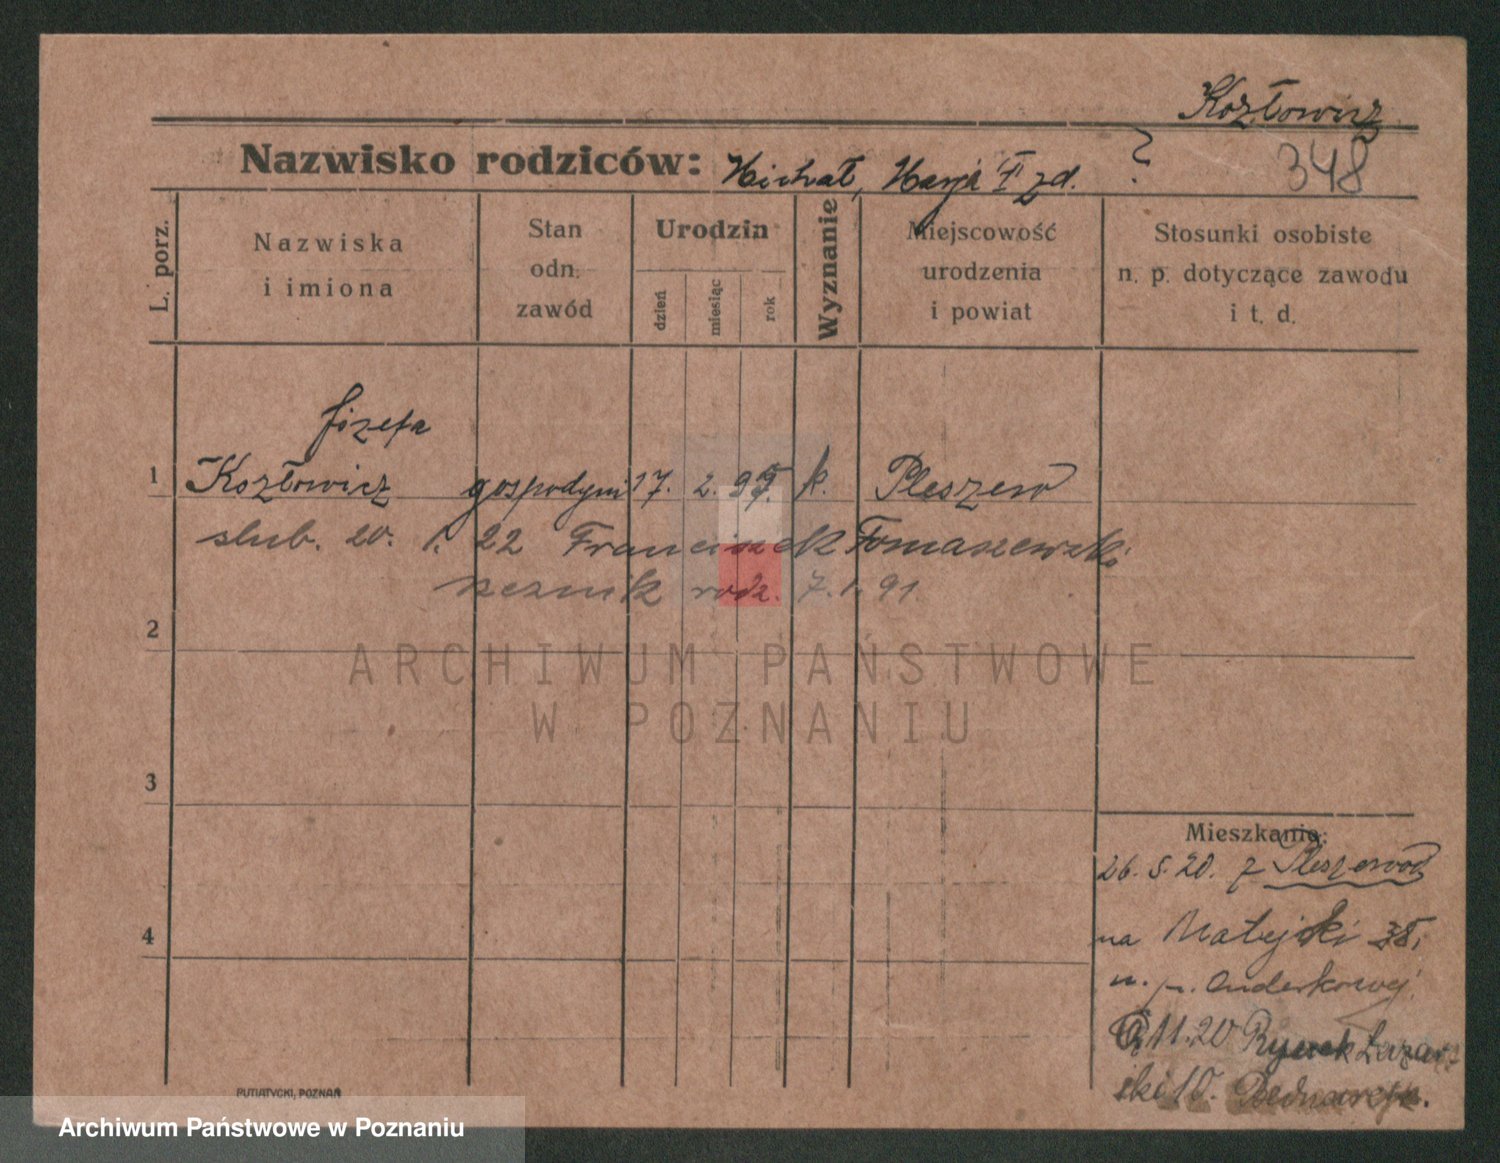 Kozłowicz
Nazwisko rodziców: Michał, Marja I zd. ?
348
L. porz.
Nazwiska
i imiona
Stan
odn.
zawód
Urodzin
dzień
miesiąc
rok
Wyznanie
Miejscowość
urodzenia
i powiat
Stosunki osobiste
n. p. dotyczące zawodu
i t. d.
Józefa
1 Kozłowicz gospodyni 17. 2. k. Pleszew
slub. 20. 1. 22 Franciszek Tomaszewski
rzeznik rodz. 7. 1. 91
2
ARCHIWUM PAŃSTWOWE
W POZNANIU
3
4
Mieszkanie:
26. 5. 20. z
na Matejki 38,
u. p.
11.20 Rynek Łazar-
ski 10.
PUTIATYCKI, POZNAŃ
Archiwum Państwowe w Poznaniu